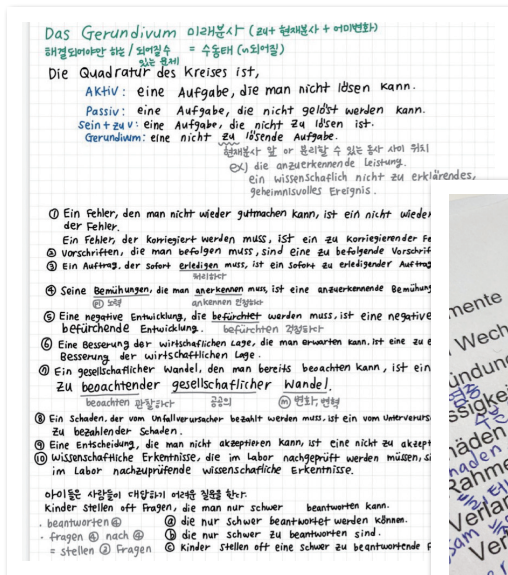 Das Gerundivum 미래분사 (zu + 현재분사 + 어미변화)
해결되어야만 하는 / 되어질 수 있는 문제 = 수동태 (~되어질)
Die Quadratur des Kreises ist,
Aktiv: eine Aufgabe, die man nicht lösen kann.
Passiv: eine Aufgabe, die nicht gelöst werden kann.
Sein + zu V: eine Aufgabe, die nicht zu lösen ist.
Gerundium: eine nicht zu lösende Aufgabe.
현재분사 앞 or 분리할 수 있는 동사 사이 위치
ex) die anzuerkennende Leistung.
ein wissenschaflich nicht zu erklärendes,
geheimnisvolles Ereignis.
① Ein Fehler, den man nicht wieder gutmachen kann, ist ein nicht wieder
der Fehler.
Ein Fehler, der korrigiert werden muss, ist ein zu korrigierender Fe
② Vorschriften, die man befolgen muss, sind eine zu befolgende Vorschrif
③ Ein Auftrag, der sofort erledigen muss, ist ein sofort zu erledigender Auftrag
처리하다
④ Seine Bemühungen, die man anerkennen muss, ist eine anzuerkennende Bemühung
노력 ankennen 인정하다
⑤ Eine negative Entwicklung, die befürchtet werden muss, ist eine negative
befürchende Entwicklung. befürchten 걱정하다
⑥ Eine Besserung der wirtschaflichen Lage, die man erwarten kann, ist eine zu e
Besserung der wirtschaflichen Lage.
⑦ Ein gesellschaflicher Wandel, den man bereits beoachten kann, ist ein
zu beoachtender gesellschaflicher Wandel.
beoachten 관찰하다 공공의 ⓜ 변화, 변혁
⑧ Ein Schaden, der vom Unfallverursacher bezahlt werden muss, ist ein vom
zu bezahlender Schaden.
⑨ Eine Entscheidung, die man nicht akzeptieren kann, ist eine nicht zu akzept
⑩ Wissenschaftliche Erkentnisse, die im Labor nachgeprüft werden müssen, si
im Labor nachzuprüfende wissenschafliche Erkentnisse.
아이들은 사람들이 대답하기 어려운 질문을 한다.
Kinder stellen oft Fragen, die man nur schwer beantworten kann.
· beantworten ④ ⓐ die nur schwer beantwortet werden können.
· fragen ④ nach ④ ⓑ die nur schwer zu beantworten sind.
= stellen ② Fragen ⓒ Kinder stellen oft eine schwer zu beantwortende F
mente
Wech
ündun
ssigke
häden
Rahme
Verlar
Ver